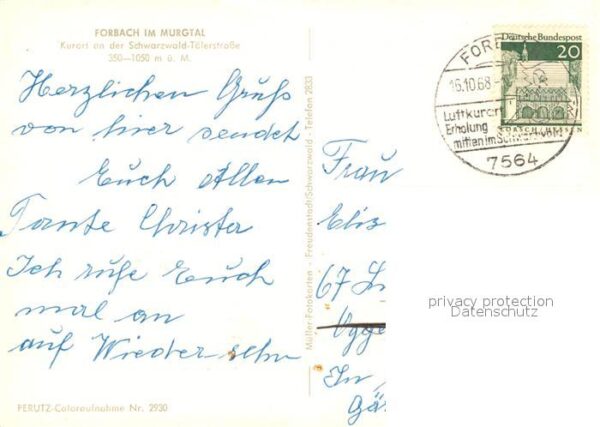 FORBACH IM MURGTAL
Kurort an der Schwarzwald-Tälerstraße
350—1050 m ü. M.
Herzlichen Gruß
von hier sendet
Euch Allen
Tante Christa
Ich rufe Euch
mal an
auf Wiedersehn
PERUTZ-Coloraufnahme Nr. 2930
Müller-Fotokarten - Freudenstadt/Schwarzwald - Telefon 2833
Deutsche Bundespost
20
LORSCH/HESSEN
16.10.68
Luftkurort
Erholung
mitten im Schwarzwald
7564
Frau
67
In
privacy protection
Datenschutz